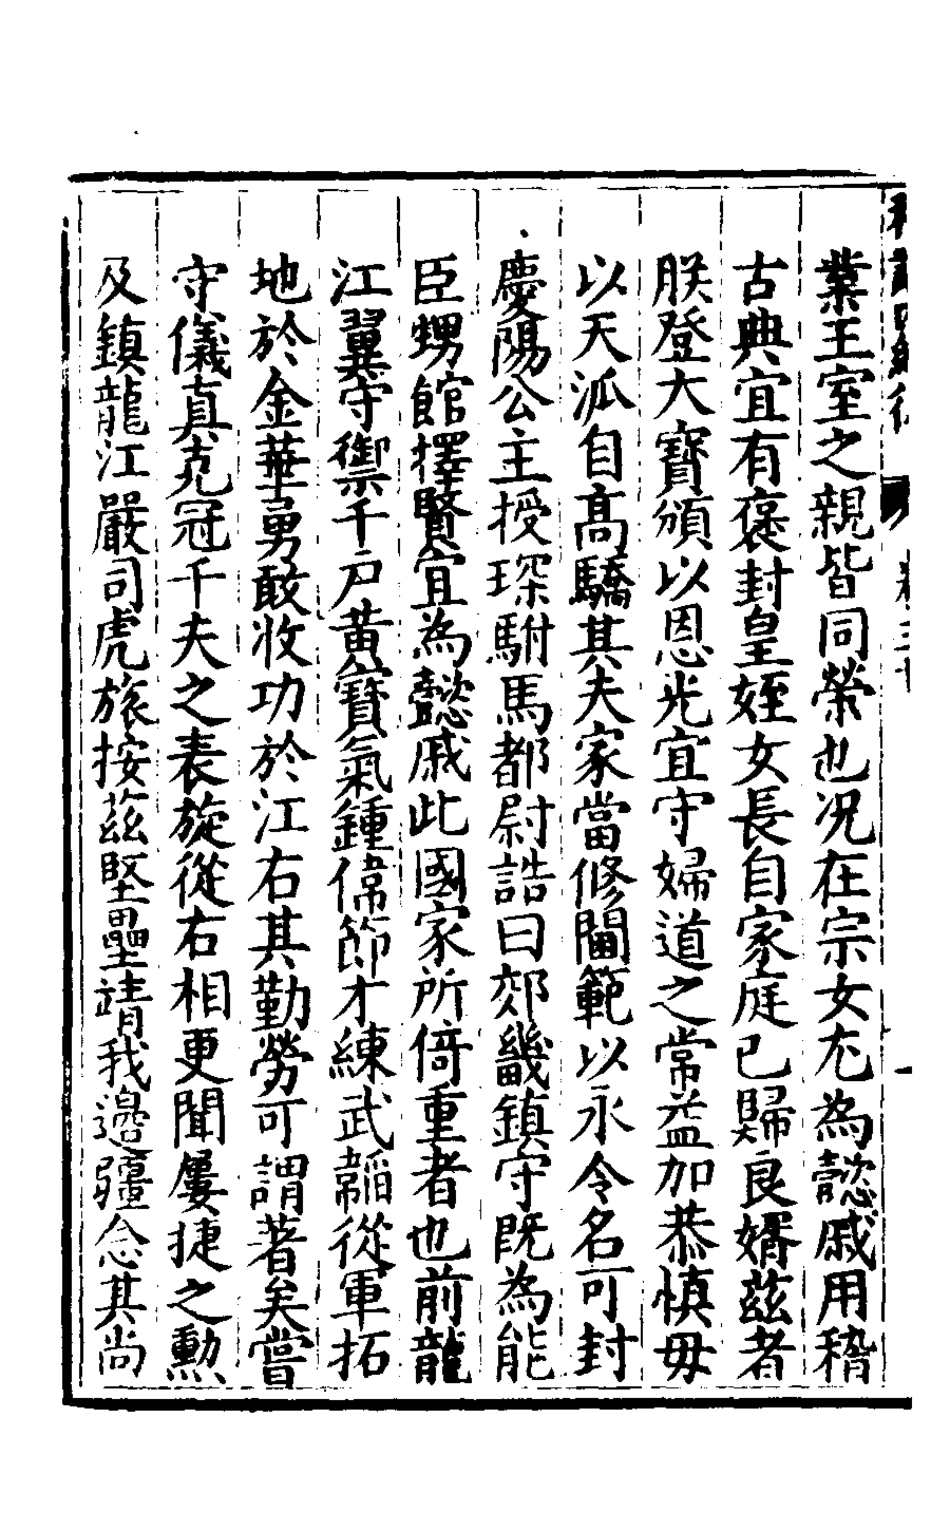 業王室之親皆同榮也况在宗女尤為懿戚用稽
古典宜有褒封皇姪女長自家庭已歸良婿茲者
朕登大寶頒以恩光宜守婦道之常益加恭慎毋
以天泒自高驕其夫家當修閫範以永令名可封
慶陽公主授琛駙馬都尉誥曰郊畿鎮守既為能
臣甥館擇賢宜為懿戚此國家所倚重者也前龍
江翼守禦千戶黄寶氣鍾偉節才練武韜從軍拓
地於金華勇敢收功於江右其勤勞可謂著矣嘗
守儀真克冠千夫之表旋從右相更聞屢捷之勳
及鎮龍江嚴司虎旅按茲堅壘靖我邊疆念其尚